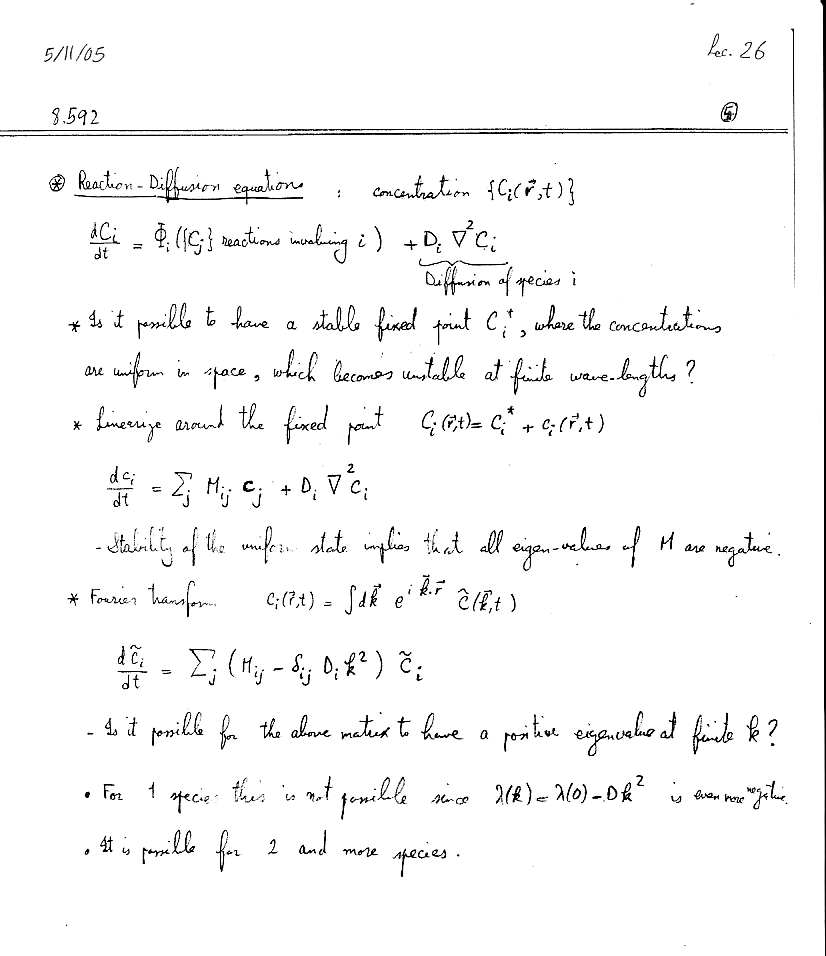 5/11/05 Lec. 26
8.592 ⑤
⊛ Reaction-Diffusion equations : concentration {Cᵢ(r⃗,t)}
dCᵢ/dt = Φᵢ({Cⱼ} reactions involving i) + Dᵢ ∇²Cᵢ
Diffusion of species i
* Is it possible to have a stable fixed point Cᵢ*, where the concentrations
are uniform in space, which becomes unstable at finite wave-lengths?
* Linearize around the fixed point Cᵢ(r⃗,t) = Cᵢ* + cᵢ(r⃗,t)
dcᵢ/dt = Σⱼ Mᵢⱼ cⱼ + Dᵢ ∇²cᵢ
- Stability of the uniform state implies that all eigen-values of M are negative.
* Fourier transform cᵢ(r⃗,t) = ∫dk⃗ e^{i k⃗.r⃗} c̃(k⃗,t)
dc̃ᵢ/dt = Σⱼ (Mᵢⱼ - δᵢⱼ Dᵢk²) c̃ᵢ
- Is it possible for the above matrix to have a positive eigenvalue at finite k?
• For 1 species this is not possible since λ(k) = λ(0) - Dk² is even more negative.
• It is possible for 2 and more species.